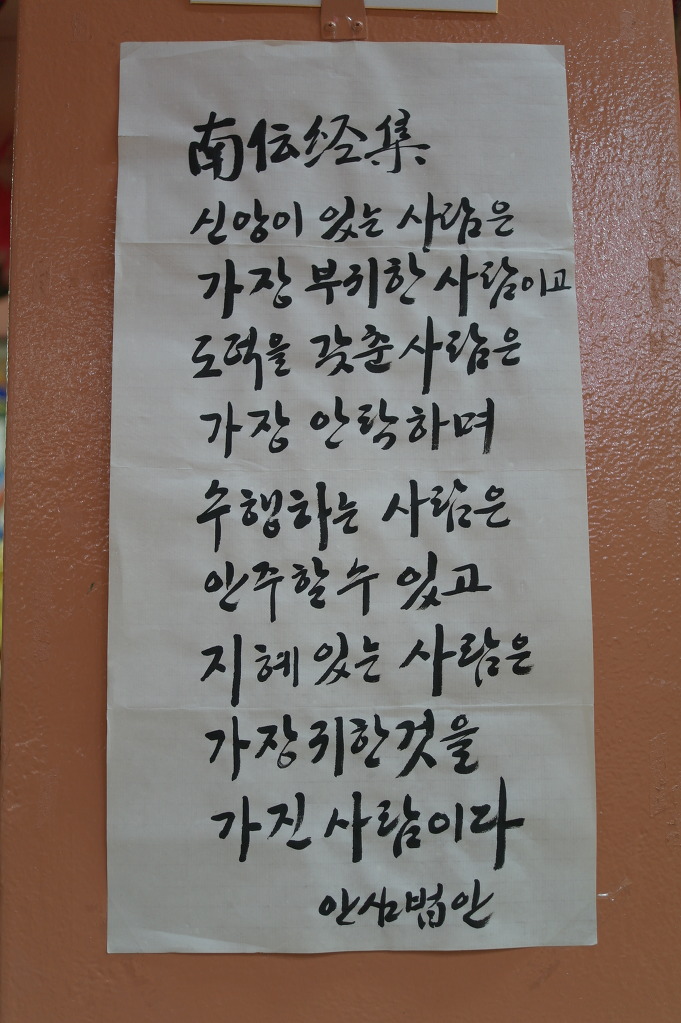 南伝经集
신앙이 있는 사람은
가장 부귀한 사람이고
도덕을 갖춘 사람은
가장 안락하며
수행하는 사람은
안주할 수 있고
지혜 있는 사람은
가장 귀한 것을
가진 사람이다
안심법안